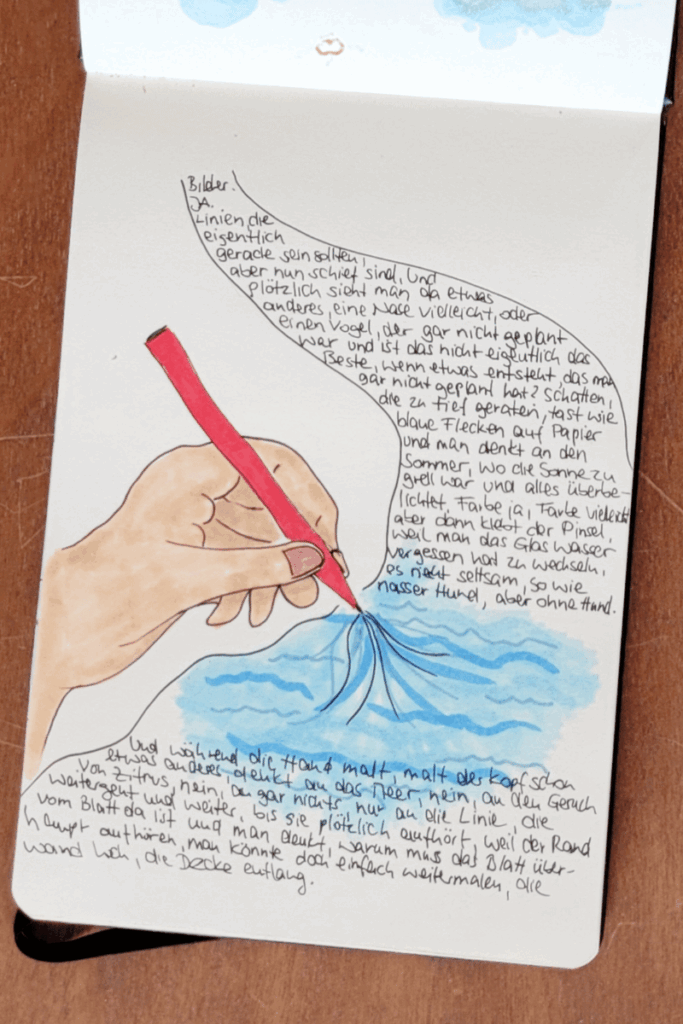 Bilder.
JA.
Linien, die
eigentlich
gerade sein sollten,
aber nun schief sind, und
plötzlich sieht man da etwas
anderes, eine Nase vielleicht, oder
einen Vogel, der gar nicht geplant
war und ist das nicht eigentlich das
Beste, wenn etwas entsteht, das man
gar nicht geplant hat? Schatten,
die zu tief geraten, fast wie
blaue Flecken auf Papier
und man denkt an den
Sommer, wo die Sonne zu
grell war und alles überbe-
lichtet, Farbe ja, Farbe vielleicht
aber dann klebt der Pinsel,
weil man das Glas Wasser
vergessen hat zu wechseln,
es riecht seltsam, so wie
nasser Hund, aber ohne Hund.
Und während die Hand malt, malt der Kopf schon
etwas anderes, denkt an das Meer, nein, an den Geruch
von Zitrus, nein, an gar nichts, nur an die Linie, die
weitergeht und weiter, bis sie plötzlich aufhört, weil der Rand
vom Blatt da ist und man denkt, warum muss das Blatt über-
haupt aufhören, man könnte doch einfach weitermalen, die
Wand hoch, die Decke entlang.